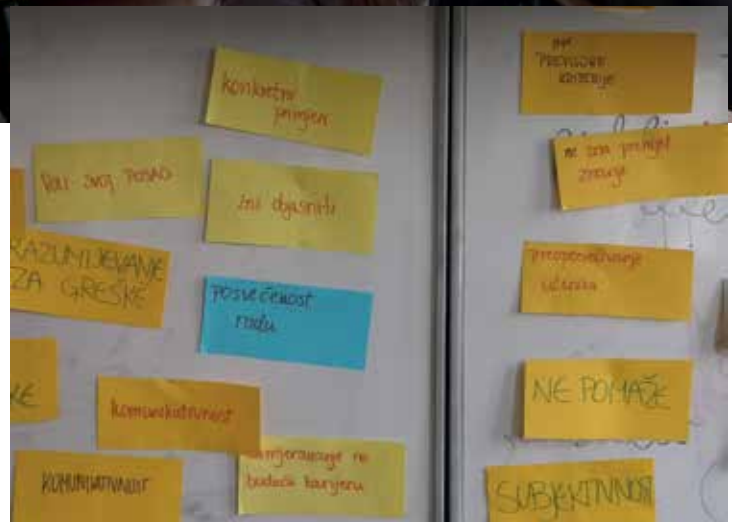 konkretni
primjeri
Voli svoj posao
zna objasniti
RAZUMIJEVANJE
ZA GREŠKE
posvećenost
radu
komunikativnost
KOMUNIKATIVNOST
usmjeravanje na
buduću karijeru
kriterije
ne zna prenijet
znanje
učenika
NE POMAŽE
SUBJEKTIVNOST